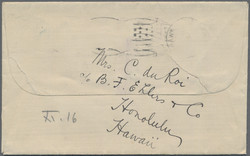 Mrs. C. du Roi
c/o B. F. Ehlers & Co
Honolulu
Hawaii
XI. 16